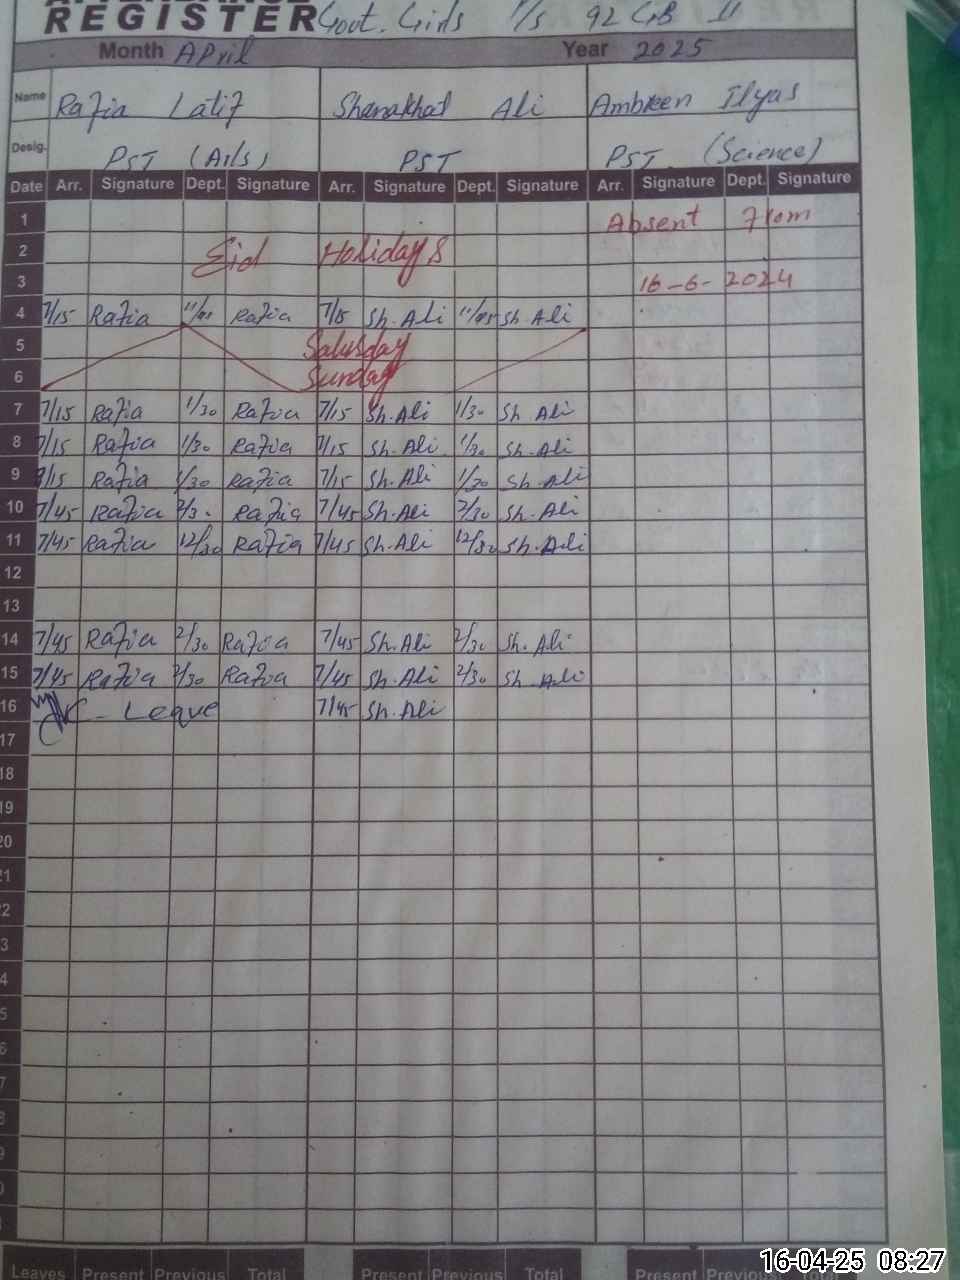 REGISTER Govt. Girls P/S 92 GB II
Month April Year 2025
Name Rafia Latif Shanakhat Ali Ambreen Ilyas
Desig. PST (Arts) PST PST (Science)
Date Arr. Signature Dept. Signature Arr. Signature Dept. Signature Arr. Signature Dept. Signature
1 Absent From
2 Eid Holidays
3 16-6-2024
4 7/15 Rafia 11/05 Rafia 7/15 Sh.Ali 11/05 Sh.Ali
5 Saturday
6 Sunday
7 7/15 Rafia 1/30 Rafia 7/15 Sh.Ali 1/30 Sh.Ali
8 7/15 Rafia 1/30 Rafia 7/15 Sh.Ali 1/30 Sh.Ali
9 7/15 Rafia 1/30 Rafia 7/15 Sh.Ali 1/30 Sh.Ali
10 7/45 Rafia 2/30 Rafia 7/45 Sh.Ali 2/30 Sh.Ali
11 7/45 Rafia 12/30 Rafia 7/45 Sh.Ali 12/30 Sh.Ali
12
13
14 7/45 Rafia 2/30 Rafia 7/45 Sh.Ali 2/30 Sh.Ali
15 7/45 Rafia 2/30 Rafia 7/45 Sh.Ali 2/30 Sh.Ali
16 C-Leave 7/45 Sh.Ali
17
18
19
20
Leaves Present Previous Total Present Previous Total Present
16-04-25 08:27